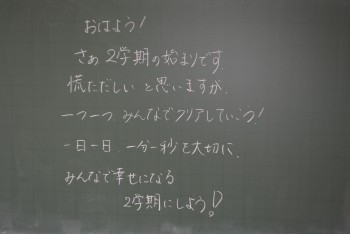 おはよう！
さぁ2学期の始まりです。
慌ただしいと思いますが、
一つ一つ、みんなでクリアしていこう！
一日一日、一分一秒を大切に、
みんなで幸せになる
2学期にしよう！